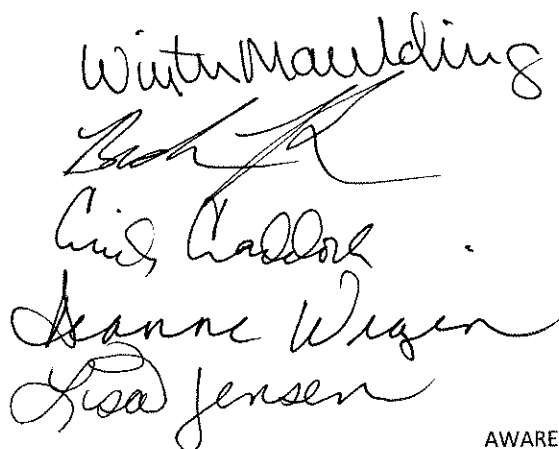 Winter Maulding
Cindy Craddock
Jeanne Wigen
Lisa Jensen
AWARE